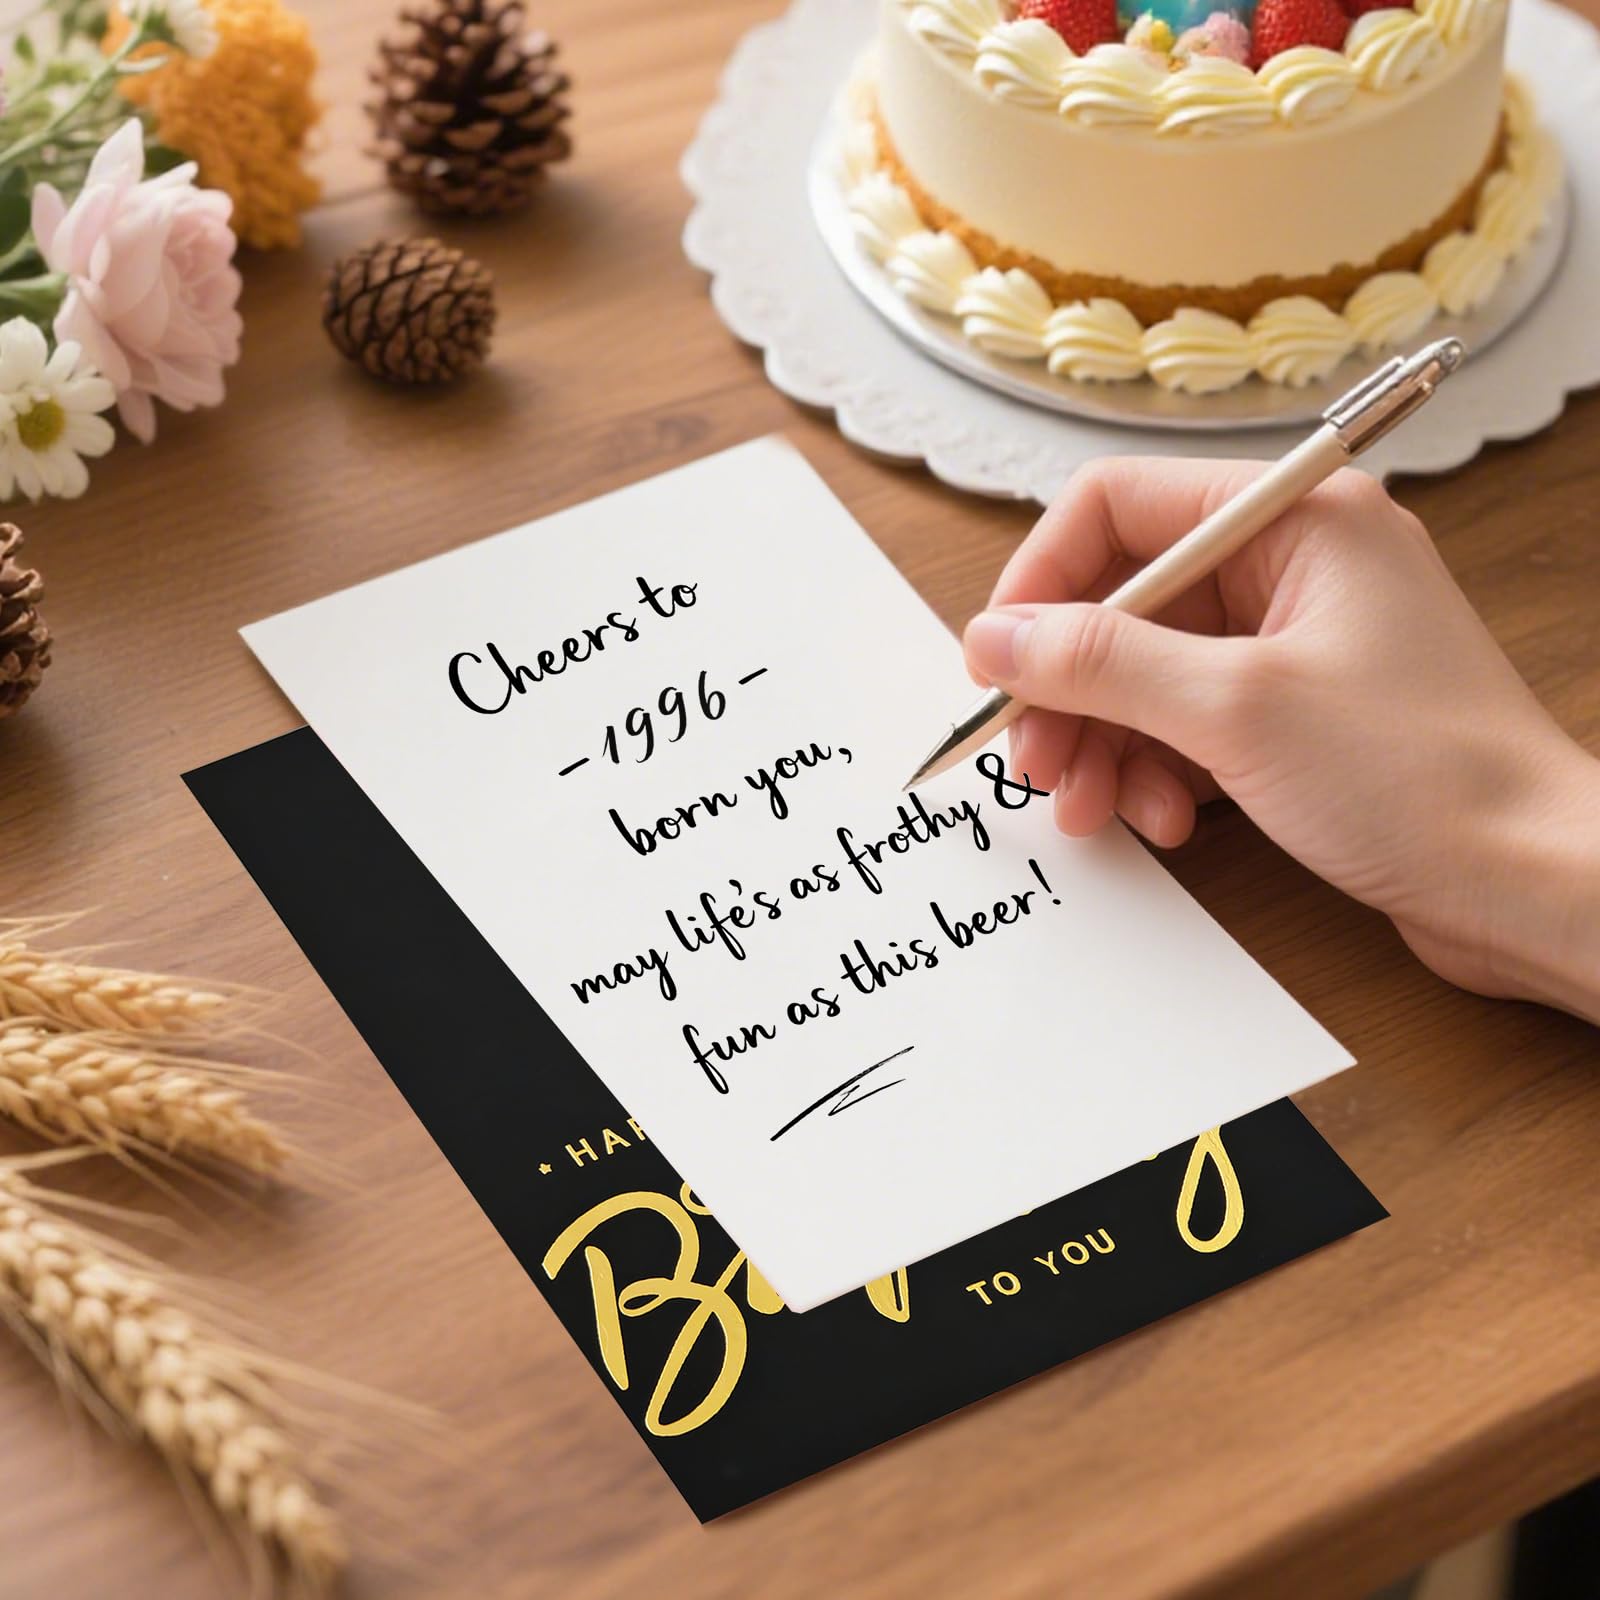 Cheers to
- 1996 -
born you,
may life's as frothy &
fun as this beer!
TO YOU